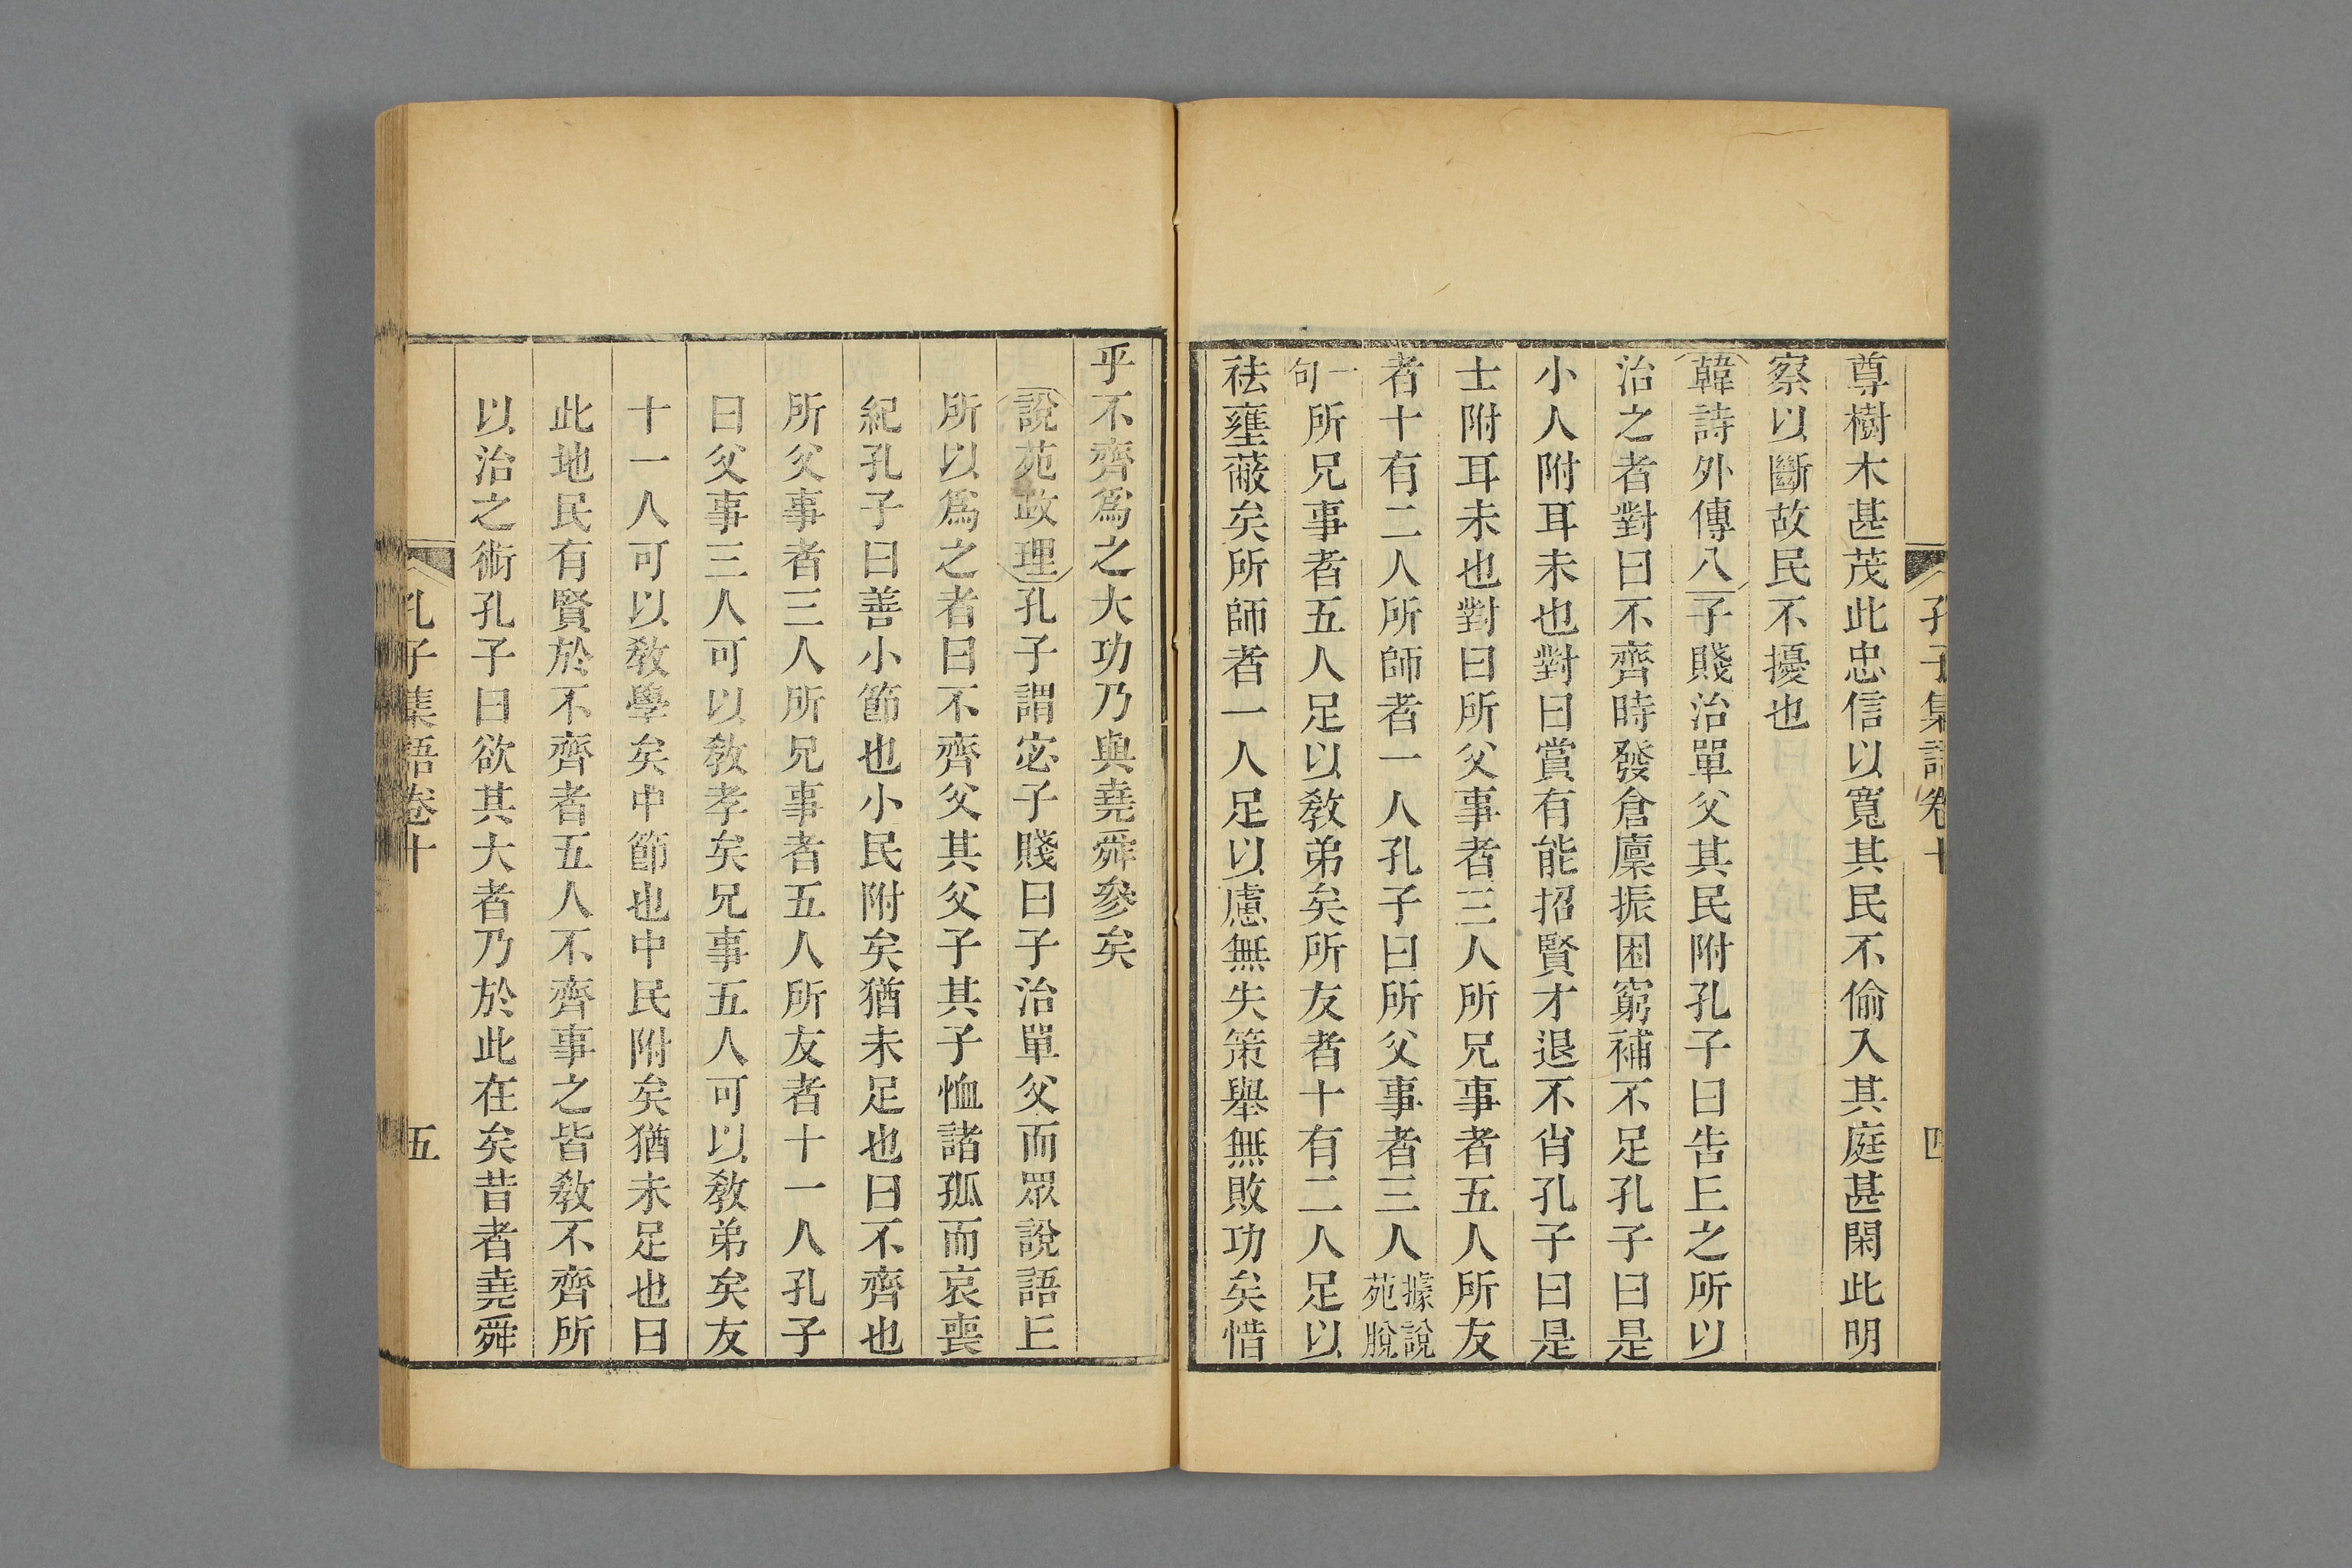 孔子集語卷十
四
尊樹木甚茂此忠信以寬其民不偷入其庭甚閑此明
察以斷故民不擾也
韓詩外傳八子賤治單父其民附孔子曰告丘之所以
治之者對曰不齊時發倉廩振困窮補不足孔子曰是
小人附耳未也對曰賞有能招賢才退不肖孔子曰是
士附耳未也對曰所父事者三人所兄事者五人所友
者十有二人所師者一人孔子曰所父事者三人據說苑脫
一句所兄事者五人足以敎弟矣所友者十有二人足以
祛壅蔽矣所師者一人足以慮無失策舉無敗功矣惜
乎不齊爲之大功乃與堯舜參矣
說苑政理孔子謂宓子賤曰子治單父而眾說語丘
所以爲之者曰不齊父其父子其子恤諸孤而哀喪
紀孔子曰善小節也小民附矣猶未足也曰不齊也
所父事者三人所兄事者五人所友者十一人孔子
曰父事三人可以敎孝矣兄事五人可以敎弟矣友
十一人可以敎學矣中節也中民附矣猶未足也曰
此地民有賢於不齊者五人不齊事之皆敎不齊所
以治之術孔子曰欲其大者乃於此在矣昔者堯舜
孔子集語卷十
五